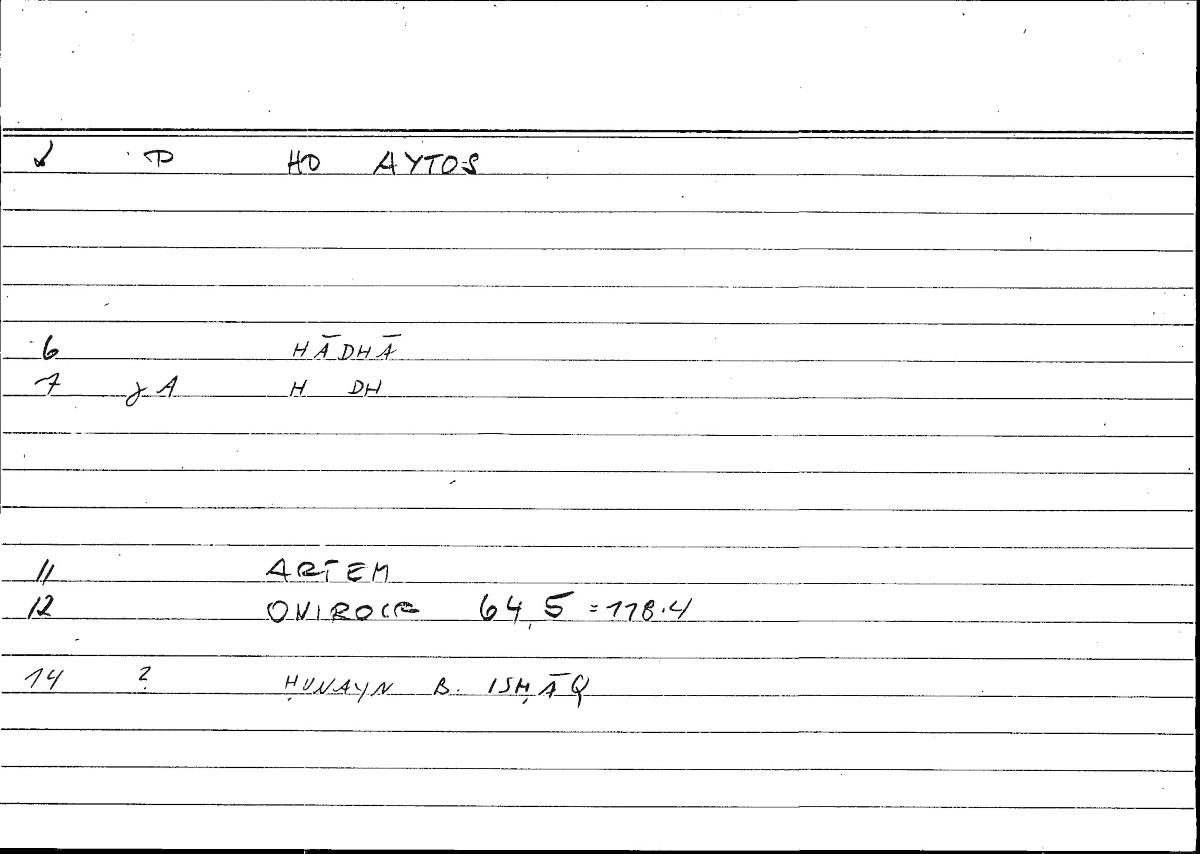 ✓ P HO AYTOS
6 HĀDHĀ
7 γA H DH
11 ARTEM
12 ONIROCR 64,5 =118.4
14 ? ḤUNAYN B. ISḤĀQ